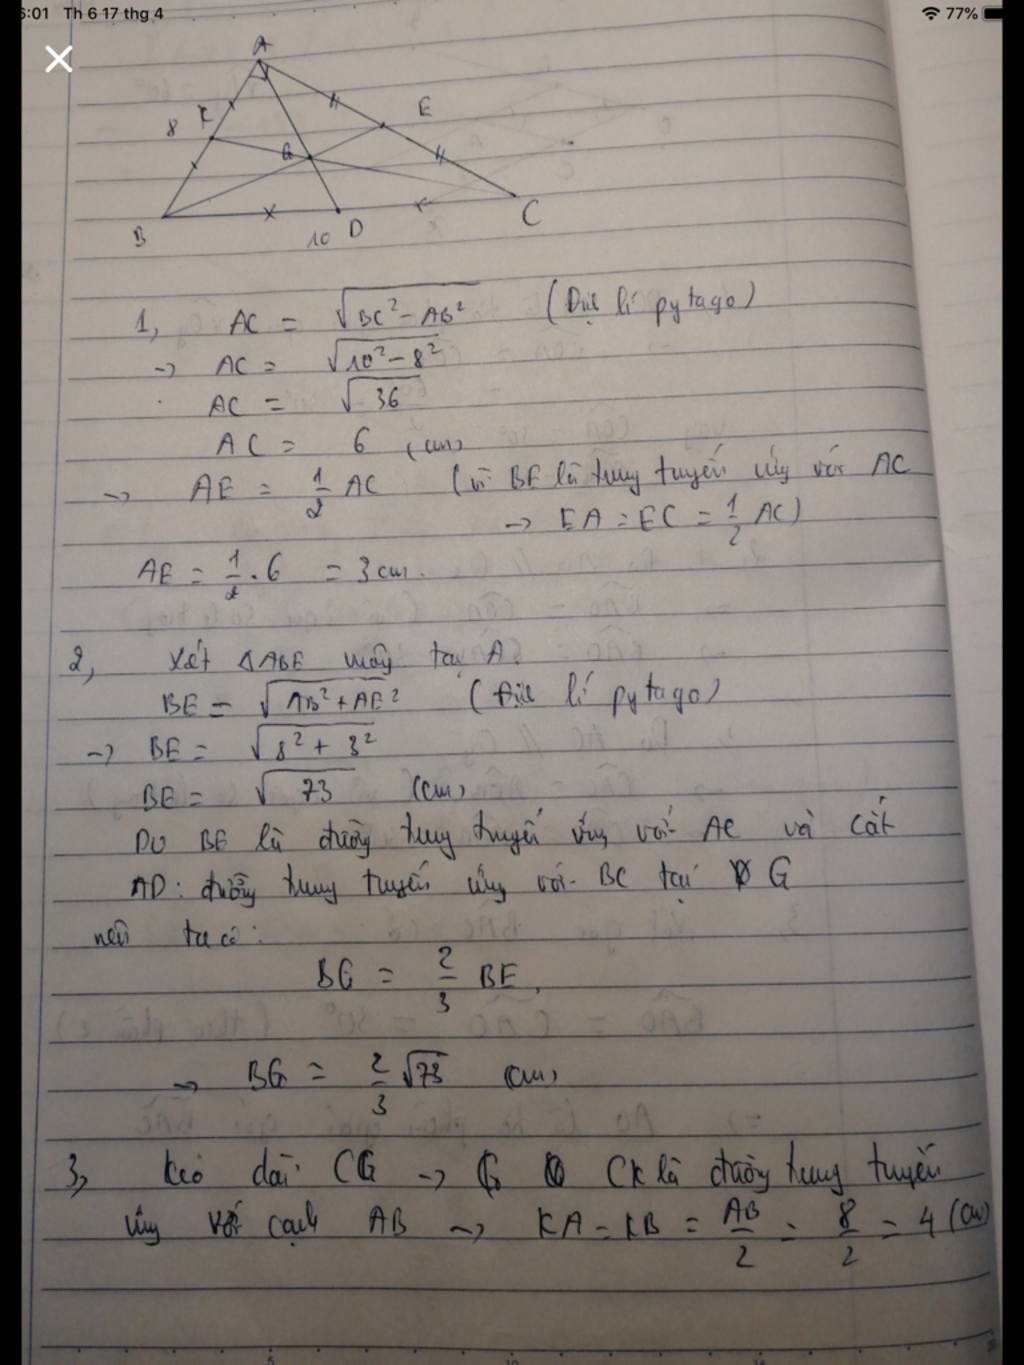 6:01 Th 6 17 thg 4 77%
A
8 K E
G
B 10 D C
1, AC = √BC² - AB² (Định lí pytago)
→ AC = √10² - 8²
AC = √36
AC = 6 (cm)
→ AE = 1/2 AC (vì BE là trung tuyến ứng với AC
→ EA = EC = 1/2 AC)
AE = 1/2 . 6 = 3 cm.
2, Xét ΔABE vuông tại A.
BE = √AB² + AE² (Định lí pytago)
→ BE = √8² + 3²
BE = √73 (cm)
Do BE là đường trung tuyến ứng với AC và cắt
AD: đường trung tuyến ứng với BC tại G
nên ta có:
BG = 2/3 BE,
→ BG = 2/3 √73 (cm)
3, Kéo dài CG → CK là đường trung tuyến
ứng với cạnh AB → KA = KB = AB/2 = 8/2 = 4 (cm)